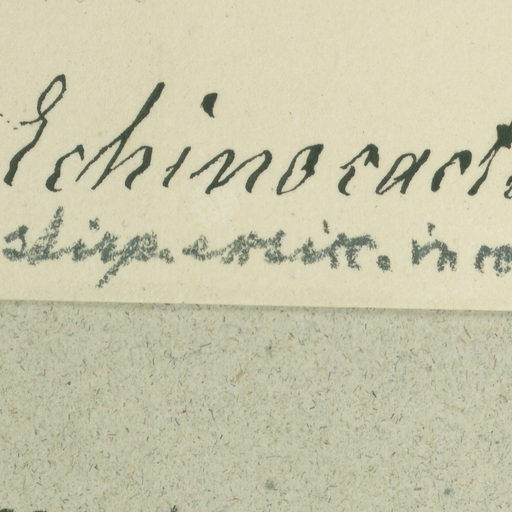 Echinocact
stirp. exsicc. in